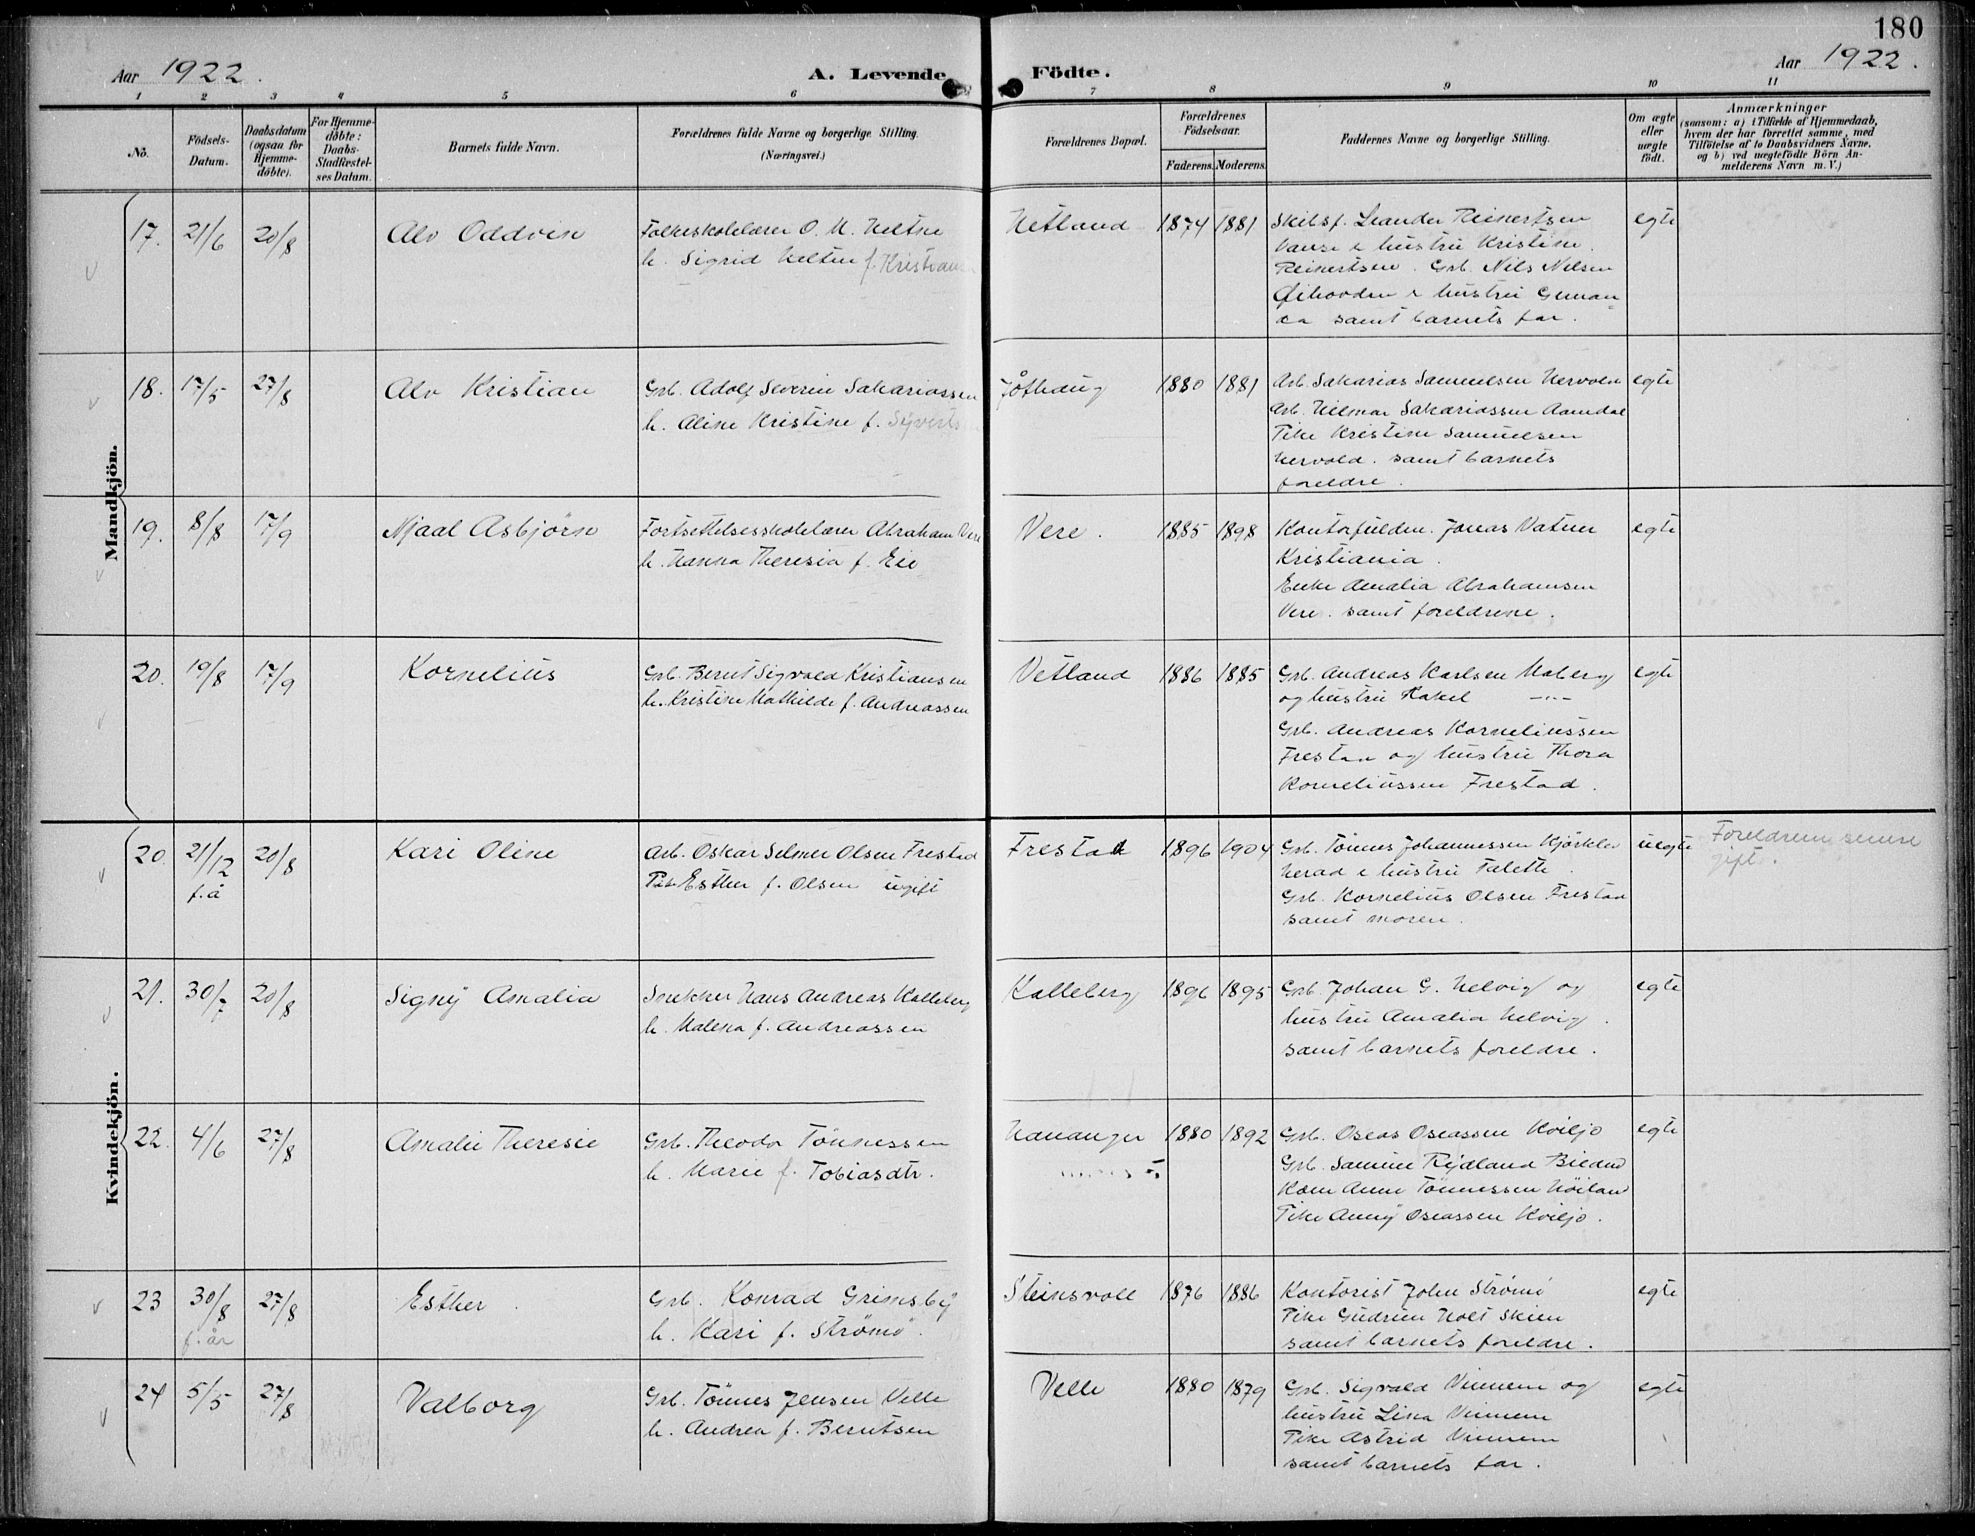 180
Aar 1922.
A. Levende Födte.
Aar 1922.
1 2 3 4 5 6 7 8 9 10 11
No.
Födsels-Datum.
Daabsdatum (ogsaa for Hjemme-döbte).
For Hjemme-döbte: Daabs-Stadfæstelses Datum.
Barnets fulde Navn.
Forældrenes fulde Navne og borgerlige Stilling.
(Næringsvei.)
Forældrenes Bopæl.
Forældrenes Födselsaar.
Faderens. Moderens.
Faddernes Navne og borgerlige Stilling.
Om ægte eller uægte födt.
Anmærkninger
(saasom: a) i Tilfælde af Hjemmedaab,
hvem der har forrettet samme, med
Tilföielse af to Daabsvidners Navne,
og b) ved uægtefödte Börn An-
melderens Navn m. V.)
Mandkjön.
17. 21/6 20/8 Alv Oddvin
Folkeskolelærer O. M. Heltne
h. Sigrid Heltne f. Kristians
Hetland 1874 1881
Skibsf. Leander Reinertsen
Vanse & hustru Kristine
Reinertsen. Grb. Nils Nelsen
& hustru
samt barnets far.
egte
18. 17/5 27/8 Alv Kristian
Grb. Adolf Severin Sakariassen
h. Aline Kristine f. Syverts
Jåthaug 1880 1881
Arb. Sakarias Samuelsen Hervold
Arb. Hilmar Sakariassen Aamdal
Pike Kristine Samuelsen
Hervold. samt barnets
foreldre.
egte
19. 8/8 17/9 Njaal Asbjörn
Fortsettelsesskolelærer Abraham Vere
h. Hanna Theresia f. Eie
Vere. 1885 1898
Kontorfuldm. Jonas Vatne
Kristiania.
Enke Amalia Abrahamsen
Vere. samt foreldrene.
egte
20. 19/8 17/9 Kornelius
Grb. Bernt Sigvald Kristiansen
h. Kristine Mathilde f. Andreassen
Vetland 1886 1885
Grb. Andreas Karlsen Maberg
og hustru Rakel —"—
Grb. Andreas Korneliussen
Frestad og hustru Thora
Korneliussen Frestad.
egte
Kvindekjön.
20. 21/12 f.å 20/8 Kari Oline
Arb. Oskar Selmer Olsen Frestad
Pike Esther f. Olsen ugift
Frestad 1896 1904
Grb. Tönnes Johannessen Kjörkle
herad & hustru Talette.
Grb. Kornelius Olsen Frestad
samt moren.
uegte
Foreldrene senere
gift.
21. 30/7 20/8 Signy Amalia
Snekker Hans Andreas Kalleberg
h. Malena f. Andreassen
Kalleberg 1896 1895
Grb. Johan G. Helvig og
hustru Amalia Helvig.
samt barnets foreldre.
egte
22. 4/6 27/8 Amalie Theresie
Grb. Theodor Tönnessen
h. Marie f. Tobiasdtr.
Hananger 1880 1892
Grb. Oseas Oseassen Kviljo
Grb. Samuel Rydland
Kone Anne Tönnessen Höiland
Pike Anny Oseassen Kviljo.
egte
23 30/8 f. år 27/8 Esther.
Grb. Konrad Grimsby
h. Kari f. Strömö.
Steinsvoll 1876 1886
Kontorist John Strömö
Pike Gudrun Holt Skien
samt barnets foreldre.
egte
24 5/5 27/8 Valborg
Grb. Tönnes Jensen Velle
h. Andrea f. Berntsen
Velle 1880 1879
Grb. Sigvald Vinnem og
hustru Lina Vinnem
Pike Astrid Vinnem
samt barnets far.
egte